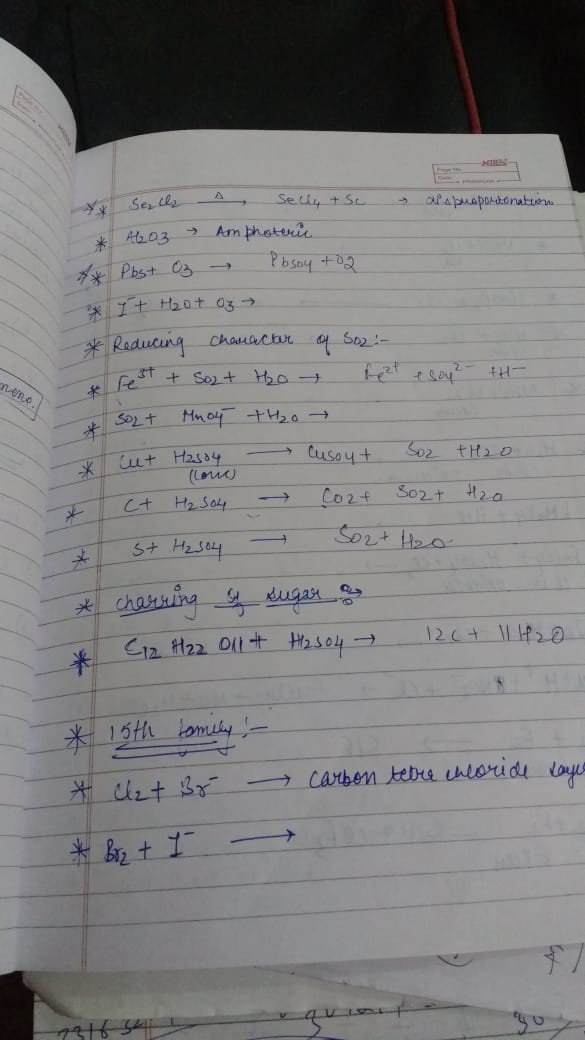 * Se2Cl2 Δ→ SeCl4 + Se → disproportonation
* Al2O3 → Amphoteric
* PbS + O3 → PbSO4 + O2
* I⁻ + H2O + O3 →
* Reducing character of SO2 :-
* Fe³⁺ + SO2 + H2O → Fe²⁺ + SO4²⁻ + H⁻
* SO2 + MnO4⁻ + H2O →
* Cu + H2SO4 → CuSO4 + SO2 + H2O
(conc)
meno.
* C + H2SO4 → CO2 + SO2 + H2O
* S + H2SO4 → SO2 + H2O
* Charring of sugar :-
* C12 H22 O11 + H2SO4 → 12C + 11 H2O
* 15th family :-
* Cl2 + Br⁻ → Carbon tetra chloride laye
* Br2 + I⁻ →